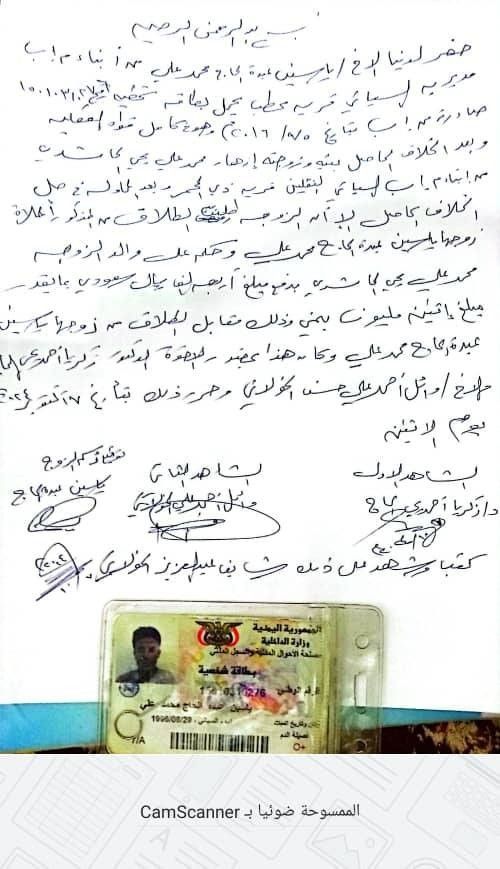 بسم الله الرحمن الرحيم
حضر لدينا الاخ / ياسين عبدة الحاج محمد علي من أبناء م اب
مديرية السياني قرية يحمل بطاقة شخصية
صادرة من اب بتاريخ ٢٠١٦/٨/٥ وهو بكامل قواه العقلية
وبعد الخلاف الحاصل بينه وزوجته محمد علي يحي الحاشدي
من ابناء م اب السياني قرية ذي وبعد المحاولة في حل
الخلاف الحاصل إلا أن الزوجة الطلاق من المذكور أعلاة
زوجها ياسين عبدة الحاج محمد علي وحكم على والد الزوجة
محمد علي يحي الحاشدي بدفع مبلغ أربعه ألف ريال سعودي مايقدر
مبلغ باثنين مليون يمني وذلك مقابل الطلاق من زوجها ياسين
عبدة الحاج محمد علي وكان هذا بحضور الدكتور زكريا أحمد
والاخ / وائل أحمد علي حسن الخولاني وحرر ذلك بتأريخ ٧ أكتوبر ٢٠٢٤
يوم الاثنين
الشاهد الاول الشاهد الثاني توقيع الزوج
د / زكريا أحمد الحاج وائل أحمد علي الخولاني ياسين عبدة الحاج
كتب وشهد على ذلك عبدالعزيز الخولاني
الجمهورية اليمنية
وزارة الداخلية
مصلحة الأحوال المدنية والسجل المدني
بطاقة شخصية
الرقم الوطني
ياسين عبده الحاج محمد علي
1996/06/29
فصيلة الدم
O+
N/A
الممسوحة ضوئيا بـ CamScanner